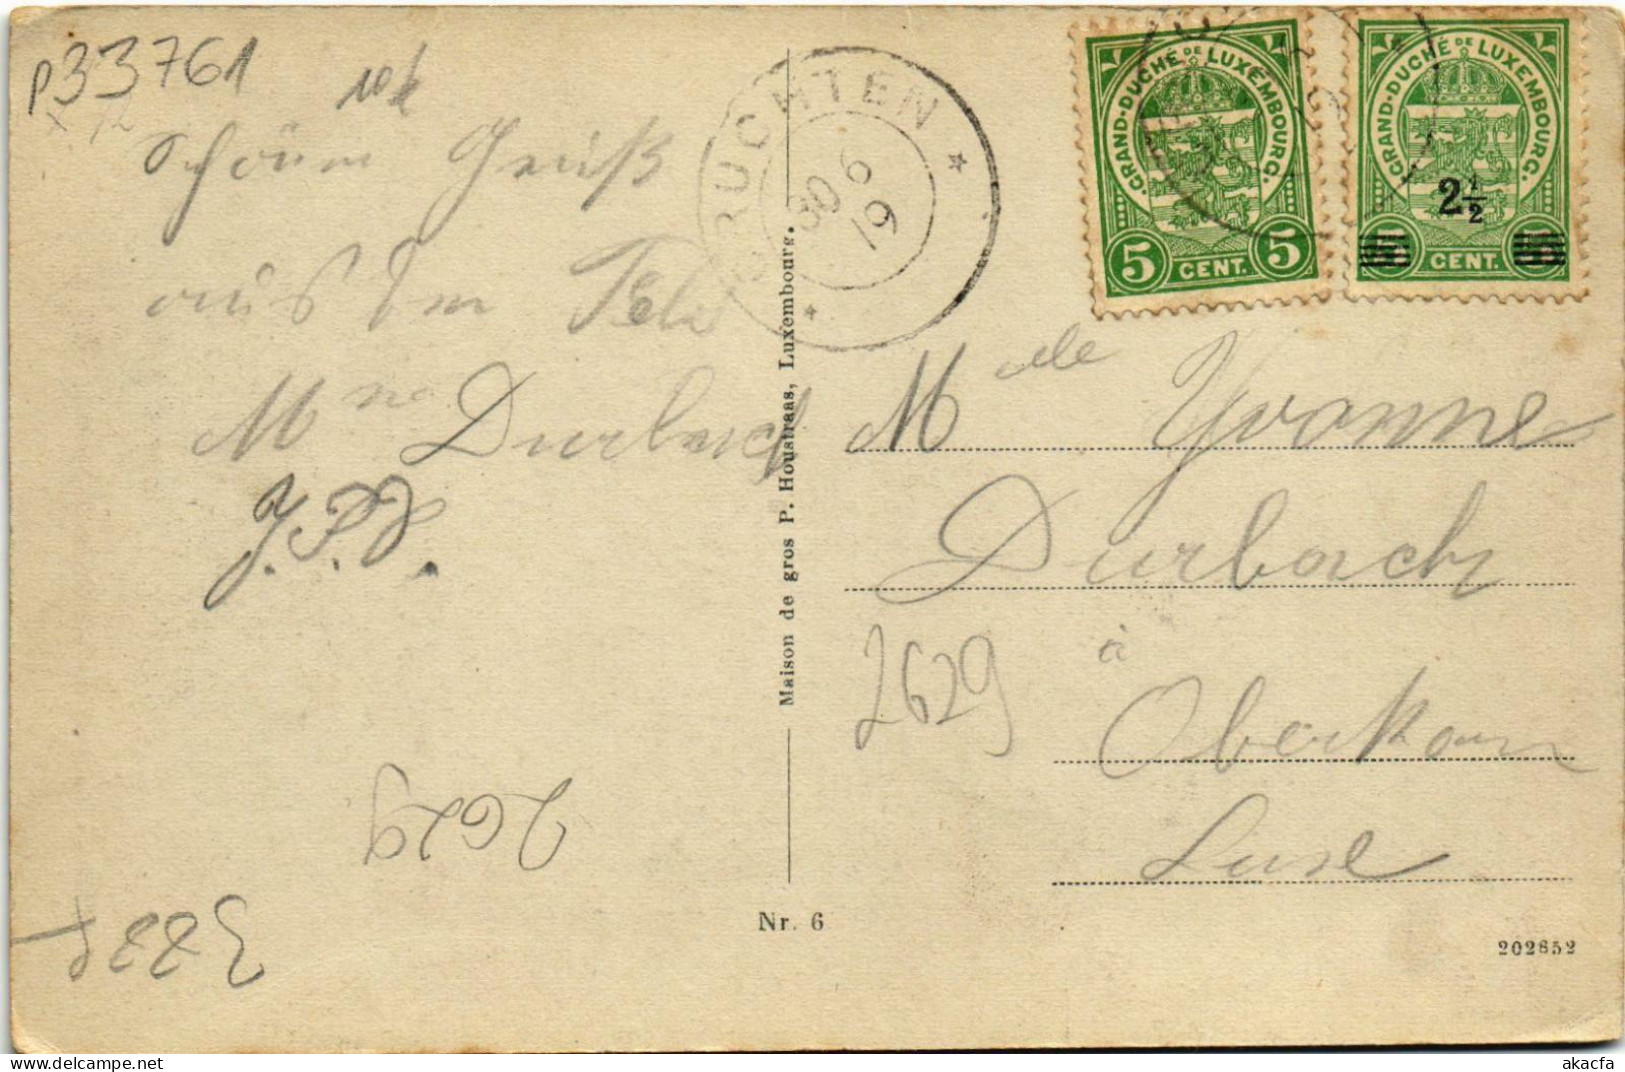 P33761
Schönen Gruß
aus
Mme Durbach
J.P.D.
CRUCHTEN
30 6
19
GRAND-DUCHÉ DE LUXEMBOURG.
5 CENT. 5
GRAND-DUCHÉ DE LUXEMBOURG.
2½
CENT.
Maison de gros P. Houstraas, Luxembourg.
Mdelle Yvonne
Durbach
à
Oberkorn
Luxe
2629
2629
Nr. 6
202852
akacfa